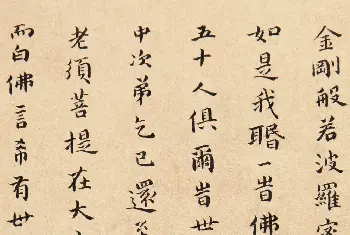 金剛般若波羅密
如是我聞一時佛
五十人俱爾時世
中次第乞已還至
老須菩提在大
而白佛言希有世